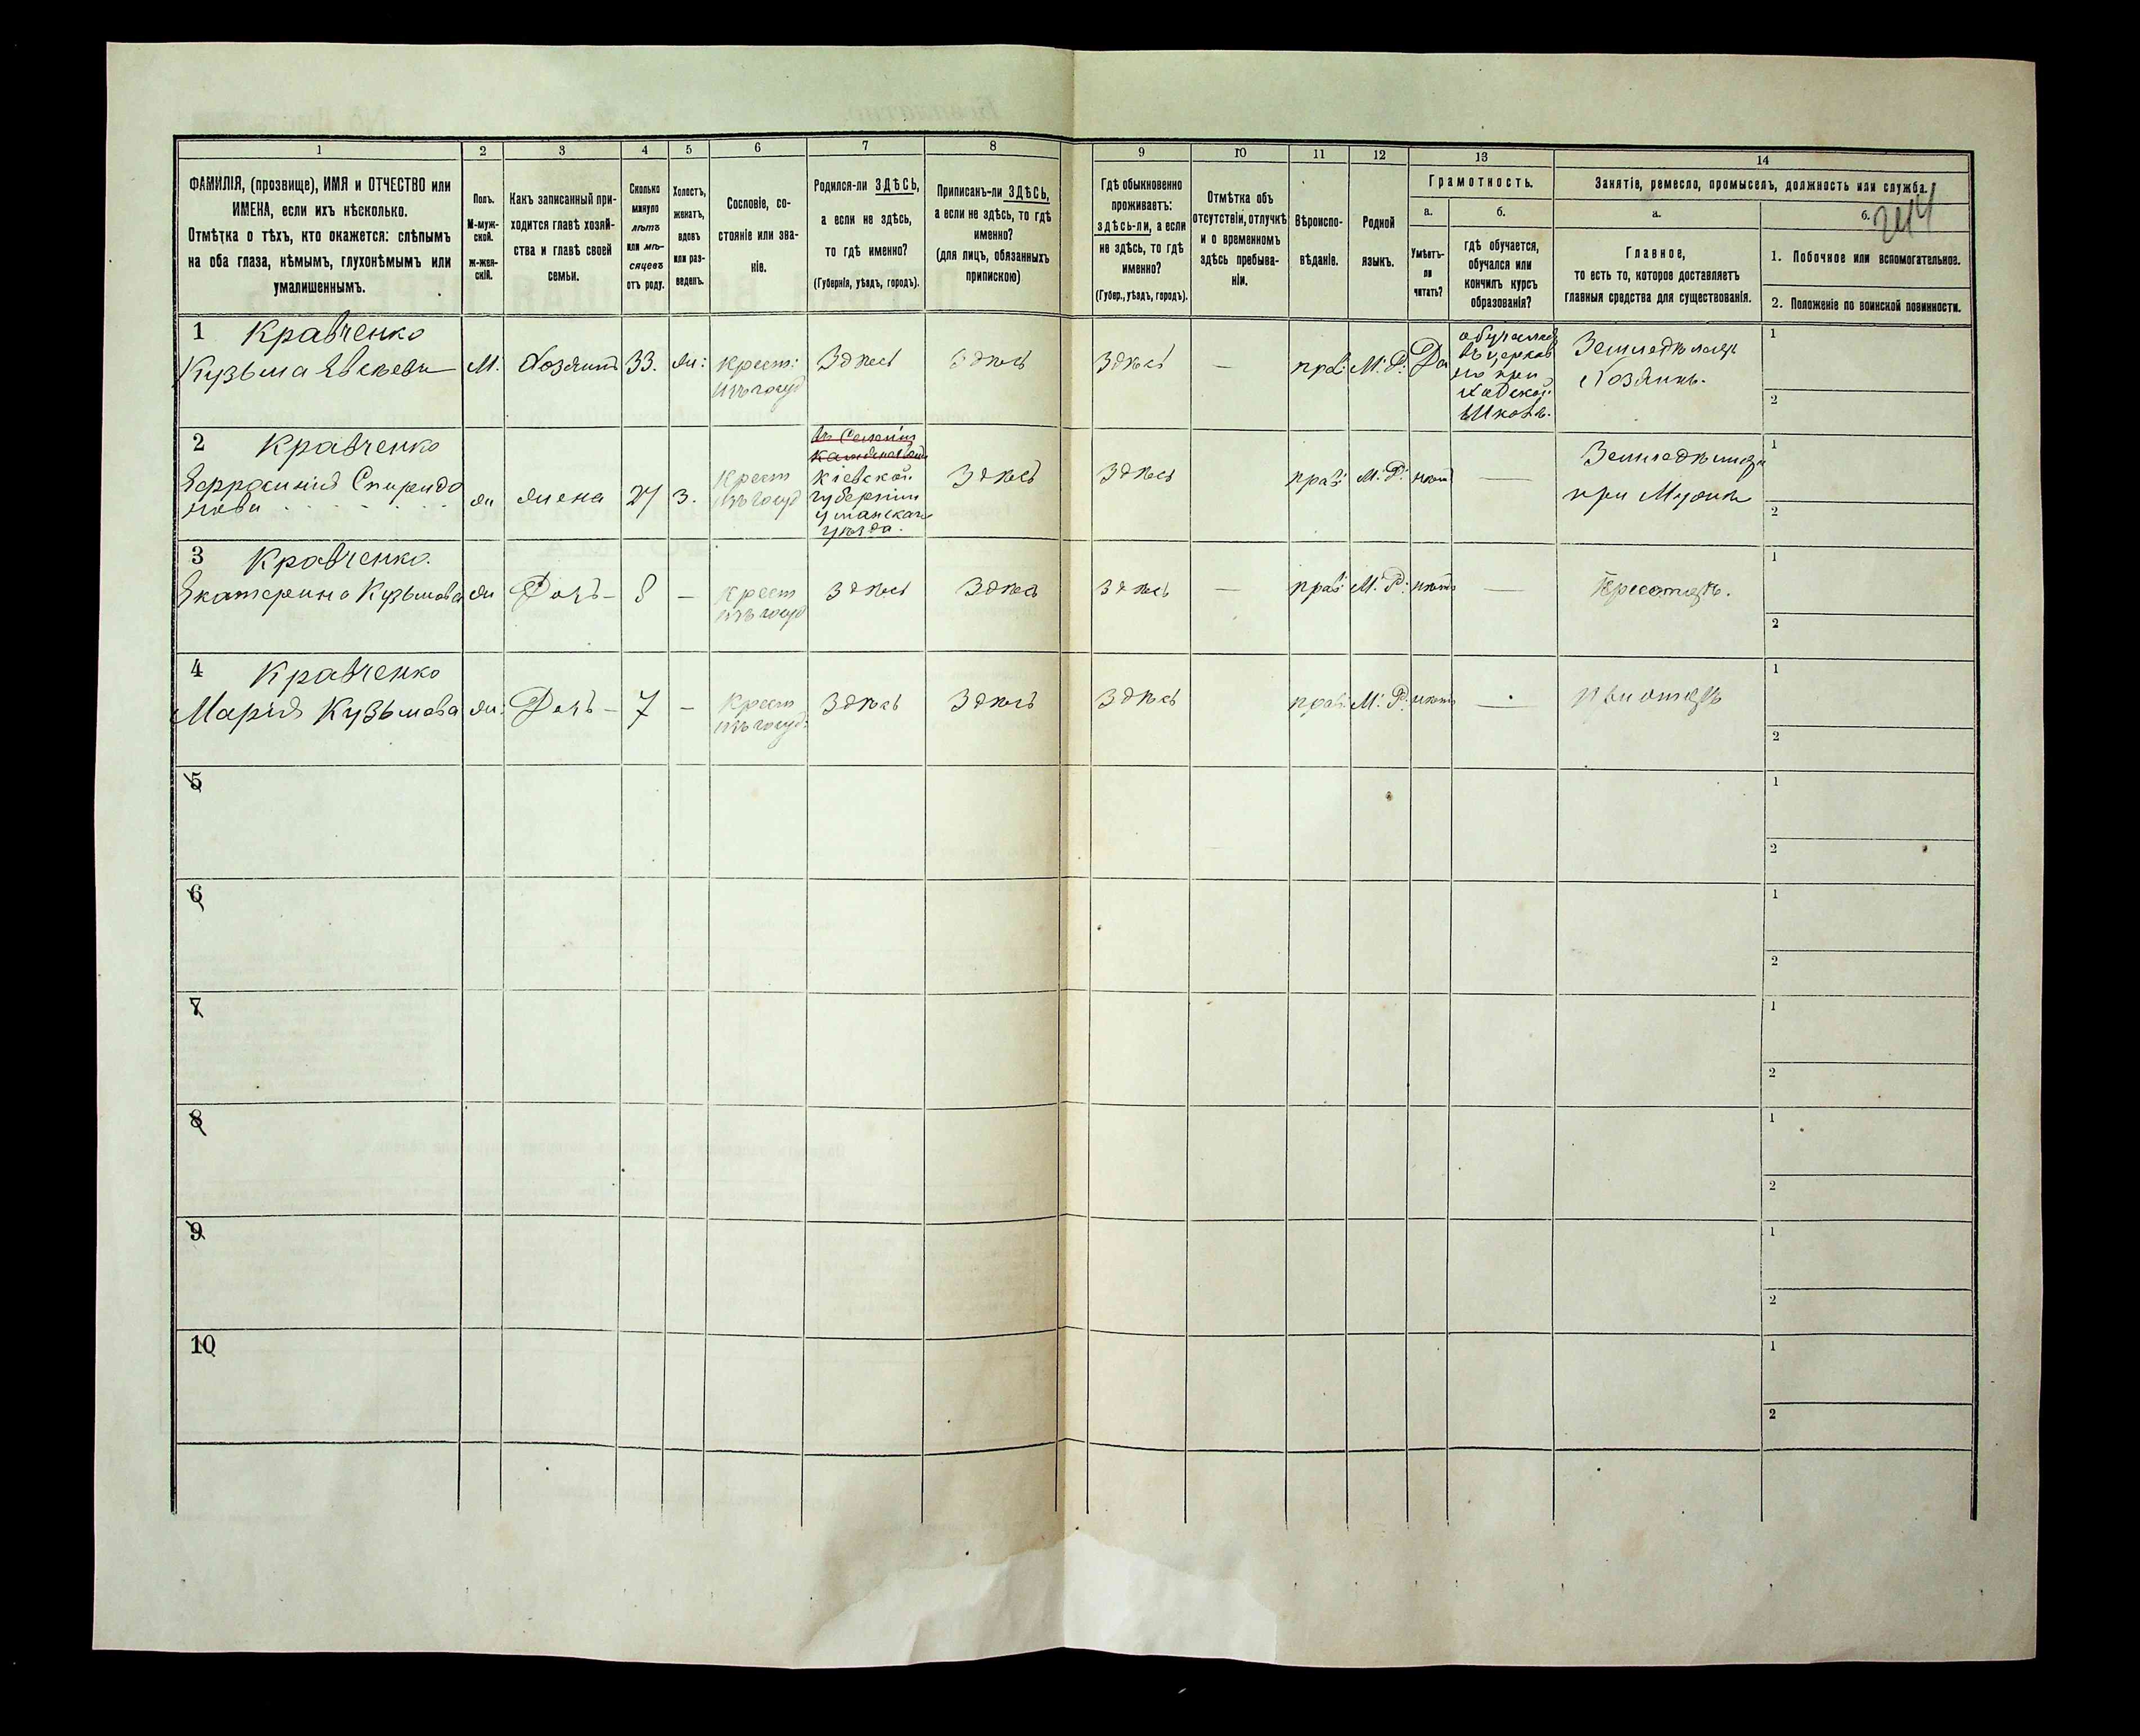 1 2 3 4 5 6 7 8 9 10 11 12 13 14
ФАМИЛІЯ, (прозвище), ИМЯ и ОТЧЕСТВО или
ИМЕНА, если ихъ нѣсколько.
Отмѣтка о тѣхъ, кто окажется: слѣпымъ
на оба глаза, нѣмымъ, глухонѣмымъ или
умалишеннымъ.
Полъ.
М-муж-
ской.
ж-жен-
скій.
Какъ записанный при-
ходится главѣ хозяй-
ства и главѣ своей
семьи.
Сколько
минуло
лѣтъ
или мѣ-
сяцевъ
отъ роду.
Холостъ,
женатъ,
вдовъ
или раз-
веденъ.
Сословіе, со-
стояніе или зва-
ніе.
Родился-ли ЗДѢСЬ,
а если не здѣсь,
то гдѣ именно?
(Губернія, уѣздъ, городъ).
Приписанъ-ли ЗДѢСЬ,
а если не здѣсь, то гдѣ
именно?
(для лицъ, обязанныхъ
припискою)
Гдѣ обыкновенно
проживаетъ:
здѣсь-ли, а если
не здѣсь, то гдѣ
именно?
(Губер., уѣздъ, городъ).
Отмѣтка объ
отсутствіи, отлучкѣ
и о временномъ
здѣсь пребыва-
ніи.
Вѣроиспо-
вѣданіе.
Родной
языкъ.
Грамотность.
а.
Умѣетъ-
ли
читать?
б.
гдѣ обучается,
обучался или
кончилъ курсъ
образованія?
Занятіе, ремесло, промыселъ, должность или служба.
а.
Главное,
то есть то, которое доставляетъ
главныя средства для существованія.
б.
244
1. Побочное или вспомогательное.
2. Положеніе по воинской повинности.
1 Кравченко
Кузьма М. Хозяинъ 33. жн: Крест: Здѣсь Здѣсь Здѣсь — прав: М. Р. Да
изъ госуд
обучался
въ церков
но при
ходской
школѣ.
Земледѣлецъ
Хозяинъ.
1
2
2 Кравченко
Ефросинія Спиридо
нова жн жена 27 з. Крест
изъ госуд
Кіевской
губерніи
уманскаго
уѣзда.
Здѣсь Здѣсь прав: М. Р. нѣтъ —
Земледѣлица
при Мужѣ
1
2
3 Кравченко.
Екатерина Кузьмова жн Дочь — 8 — Крест
изъ госуд
Здѣсь Здѣсь Здѣсь — прав: М. Р. нѣтъ —
1
2
4 Кравченко
Марія Кузьмова жн: Дочь — 7 — Крест
изъ госуд:
Здѣсь Здѣсь Здѣсь прав: М. Р. нѣтъ — при отцѣ
1
2
5
1
2
6
1
2
7
1
2
8
1
2
9
1
2
10
1
2